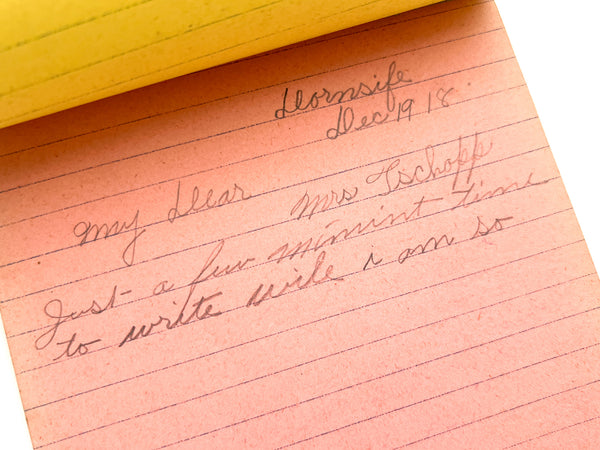 Dornsife
Dec 19 18.
My Dear Mrs Tschopp
Just a few minint time
to write wile i am so